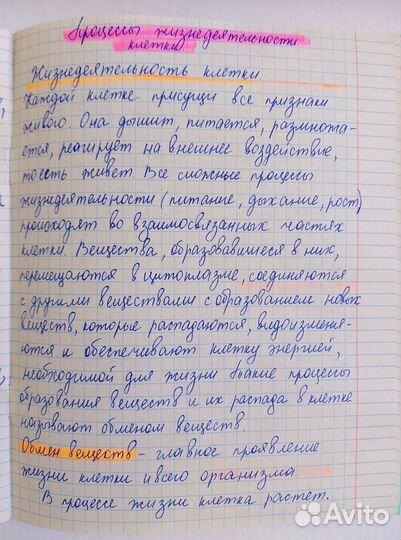 Процессы жизнедеятельности
клетки
Жизнедеятельность клетки
Каждой клетке присущи все признаки
живого. Она дышит, питается, размножа-
ется, реагирует на внешнее воздействие,
то есть живет. Все сложные процессы
жизнедеятельности (питание, дыхание, рост)
происходят во взаимосвязанных частях
клетки. Вещества, образовавшиеся в них,
перемещаются в цитоплазме, соединяются
с другими веществами с образованием новых
веществ, которые распадаются, видоизменя-
ются и обеспечивают клетку энергией,
необходимой для жизни. Такие процессы
образования веществ и их распада в клетке
называют обменом веществ.
Обмен веществ - главное проявление
жизни клетки и всего организма.
В процессе жизни клетка растет.
Avito